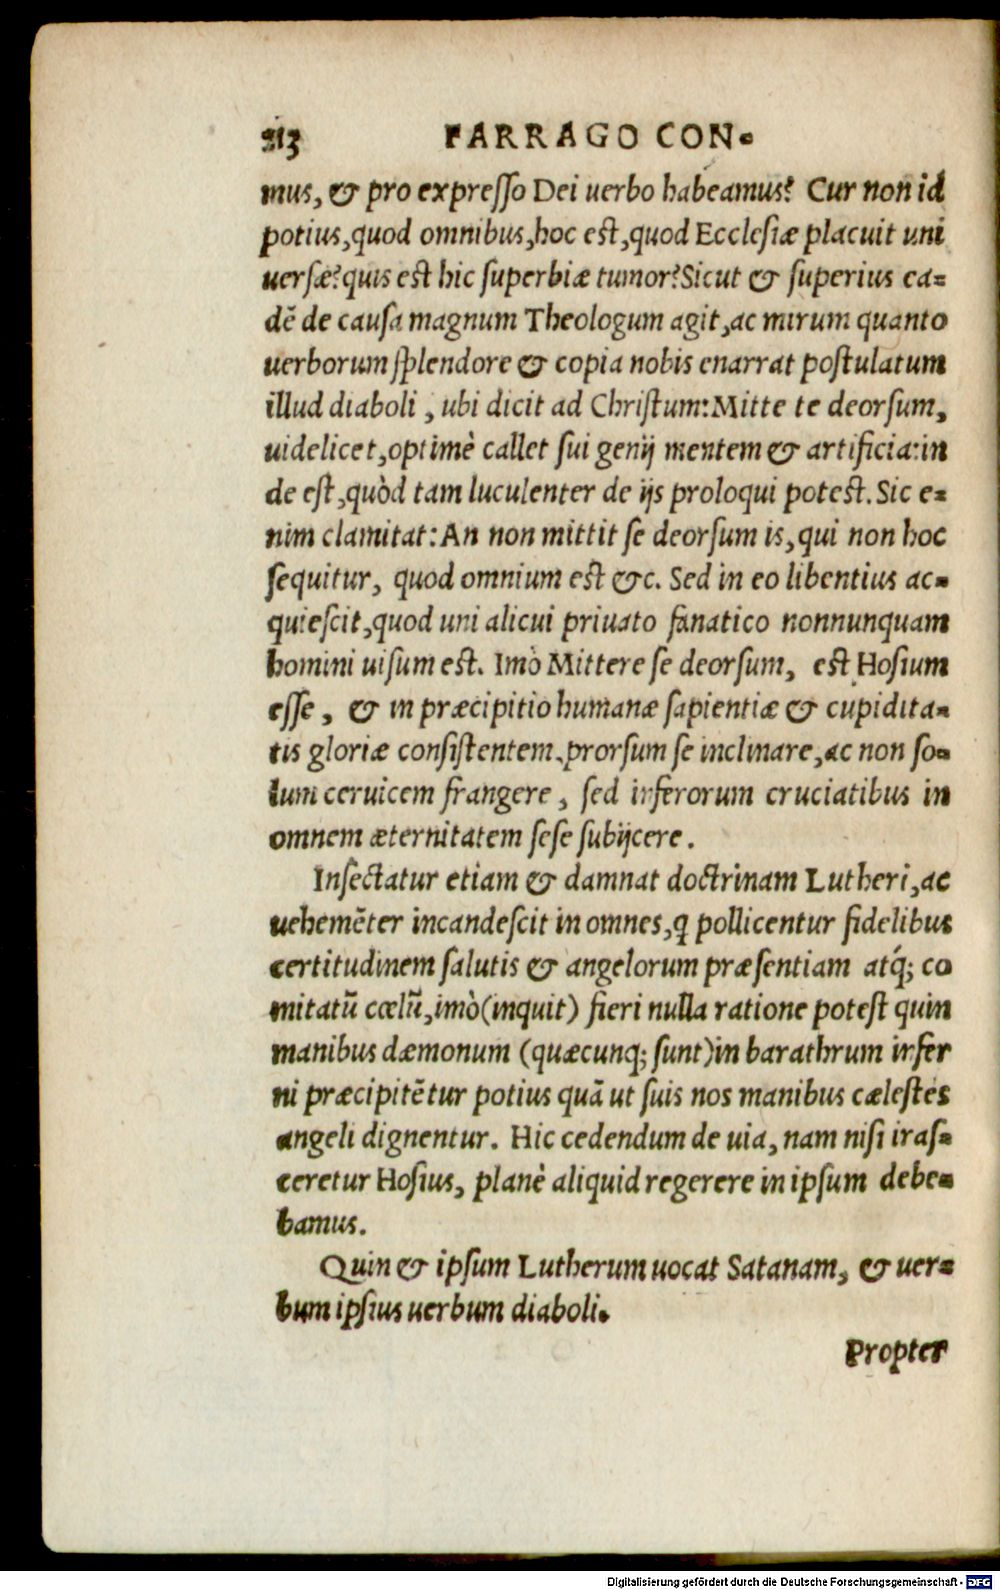 213 FARRAGO CON-
mus, & pro expresso Dei uerbo habeamus? Cur non id
potius, quod omnibus, hoc est, quod Ecclesiæ placuit uni
uersæ? quis est hic superbiæ tumor? Sicut & superius ea-
dē de causa magnum Theologum agit, ac mirum quanto
uerborum splendore & copia nobis enarrat postulatum
illud diaboli, ubi dicit ad Christum: Mitte te deorsum,
uidelicet, optimè callet sui genij mentem & artificia: in
de est, quòd tam luculenter de ijs proloqui potest. Sic e-
nim clamitat: An non mittit se deorsum is, qui non hoc
sequitur, quod omnium est &c. Sed in eo libentius ac-
quiescit, quod uni alicui priuato fanatico nonnunquam
homini uisum est. Imò Mittere se deorsum, est Hosium
esse, & in præcipitio humanæ sapientiæ & cupidita-
tis gloriæ consistentem, prorsum se inclinare, ac non so-
lum ceruicem frangere, sed inferorum cruciatibus in
omnem æternitatem sese subijcere.
Insectatur etiam & damnat doctrinam Lutheri, ac
uehemēter incandescit in omnes, q pollicentur fidelibus
certitudinem salutis & angelorum præsentiam atq́; co
mitatū cœlū, imò (inquit) fieri nulla ratione potest quin
manibus dæmonum (quæcunq; sunt) in barathrum infer
ni præcipitētur potius quā ut suis nos manibus cælestes
angeli dignentur. Hic cedendum de uia, nam nisi iras-
ceretur Hosius, planè aliquid regerere in ipsum debe-
bamus.
Quin & ipsum Lutherum uocat Satanam, & uer-
bum ipsius uerbum diaboli.
Propter
Digitalisierung gefördert durch die Deutsche Forschungsgemeinschaft - DFG